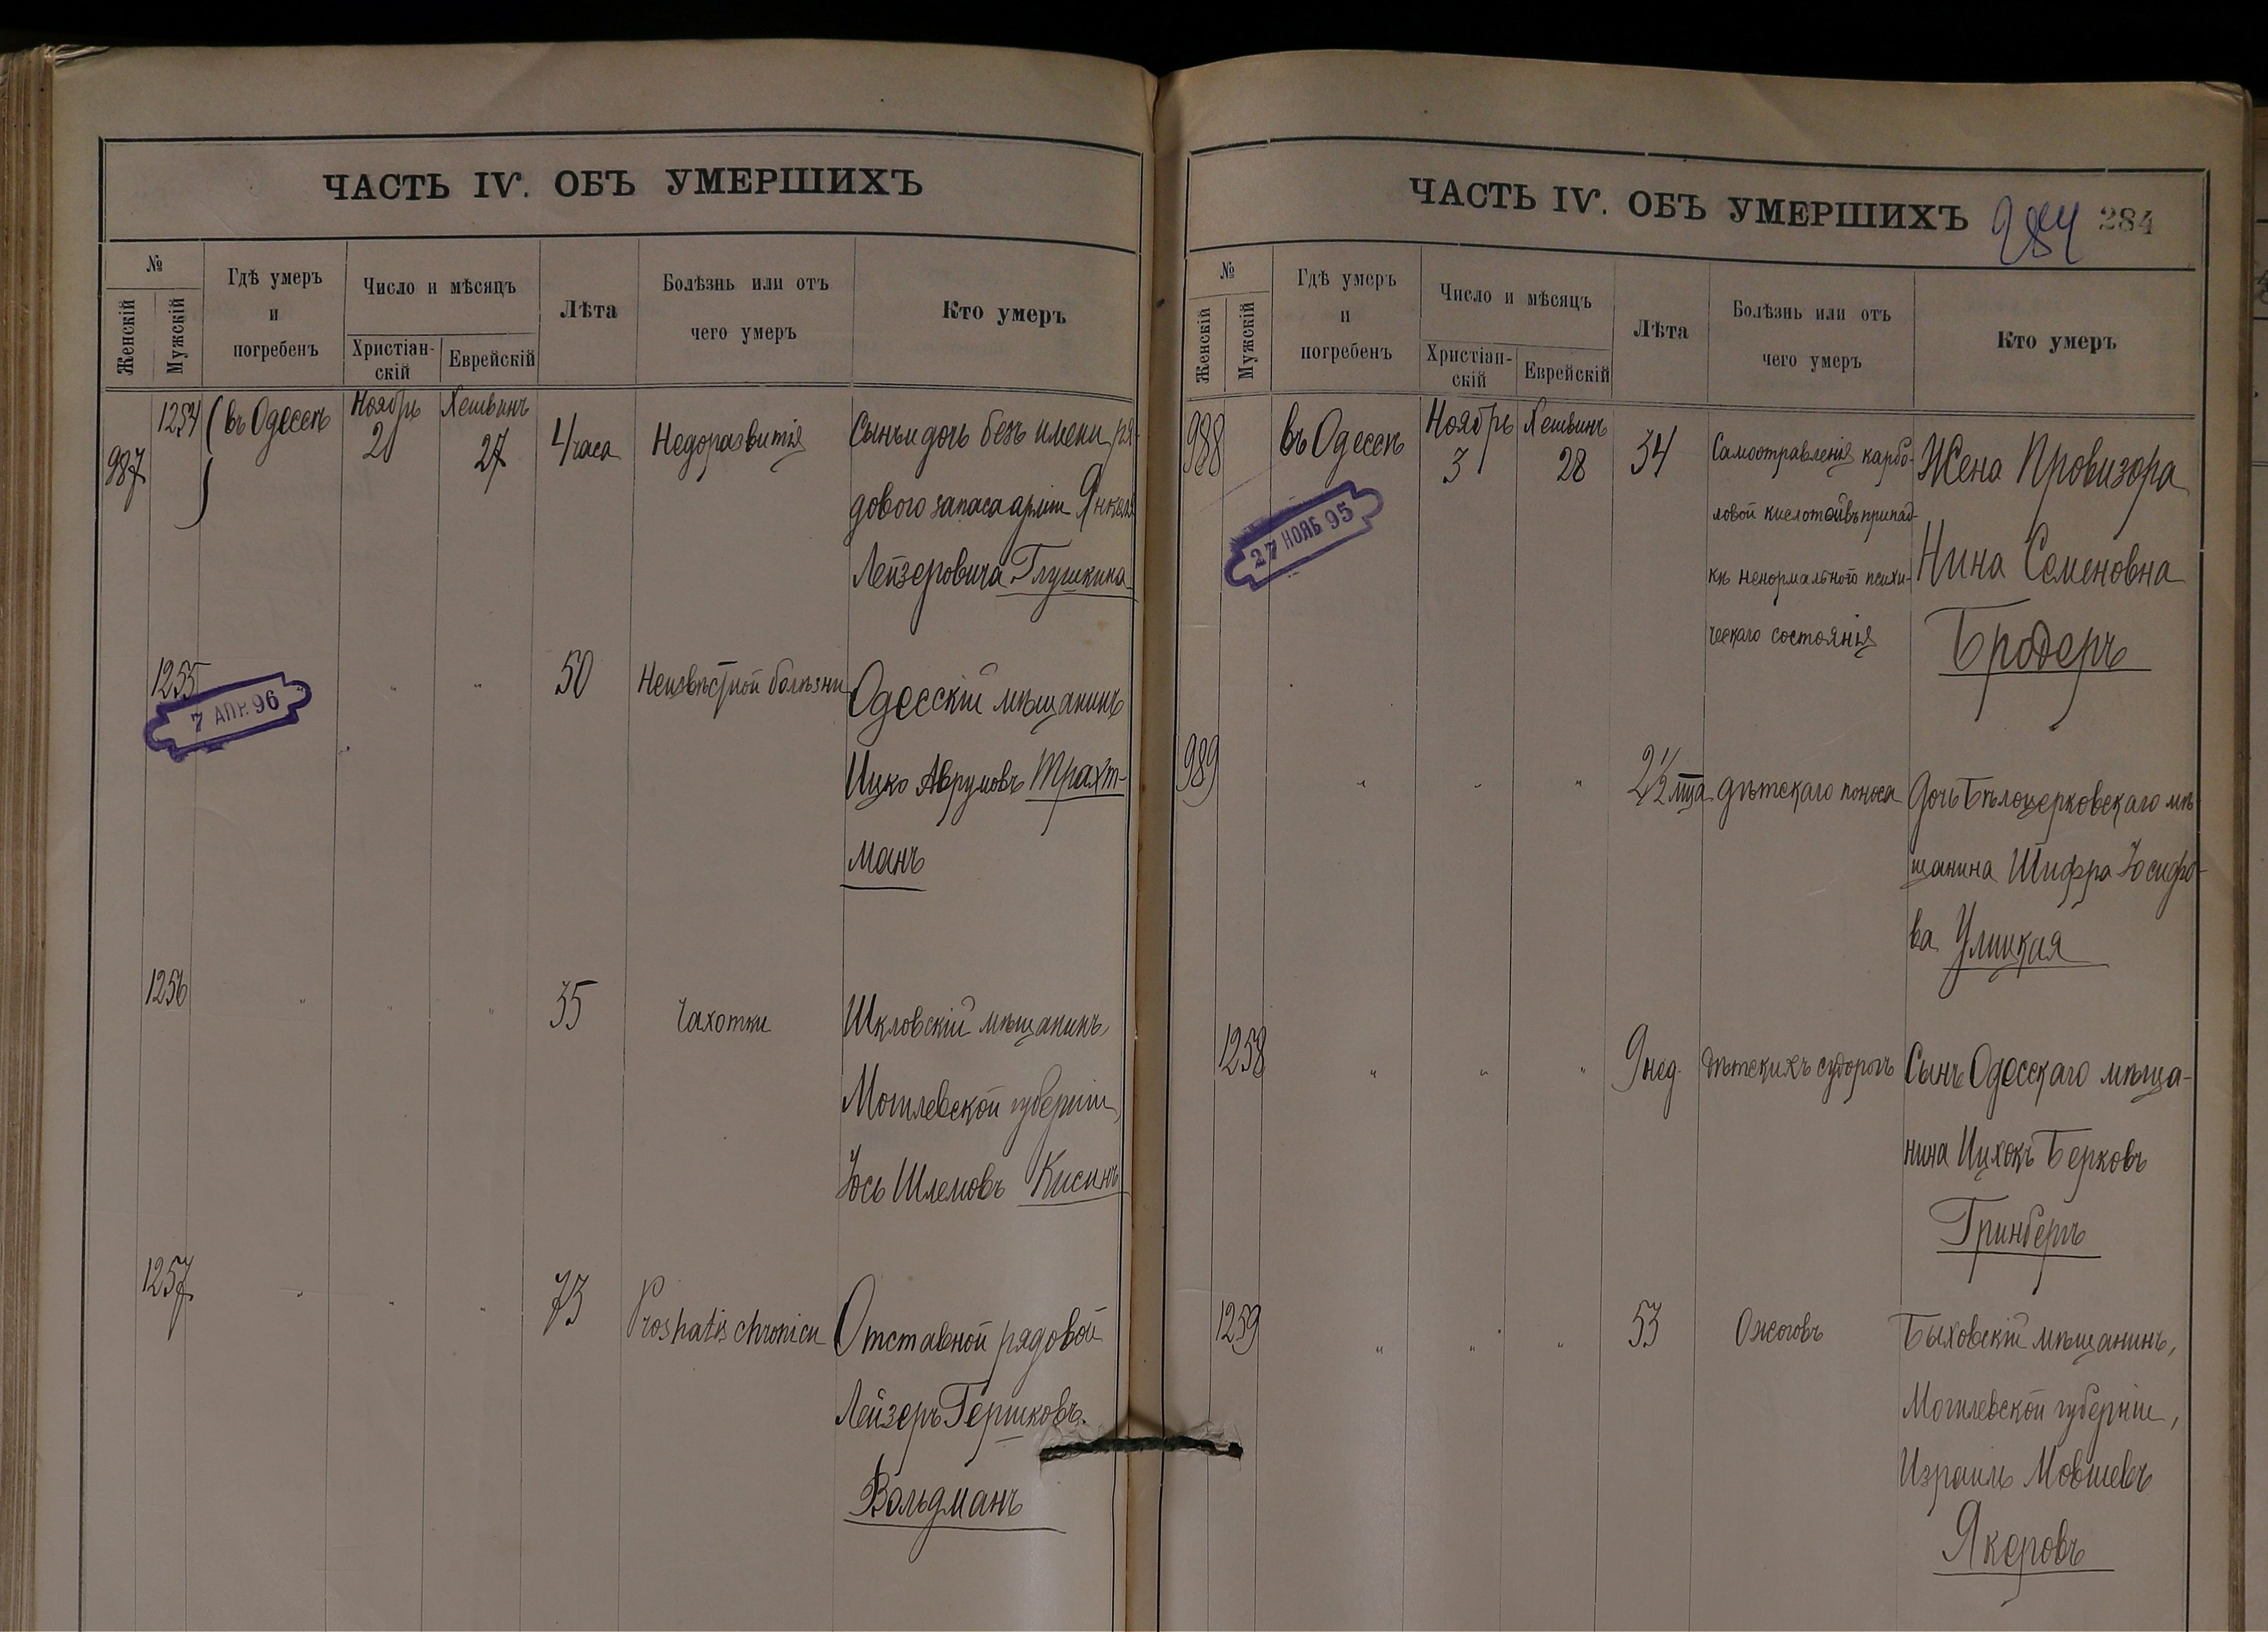 ЧАСТЬ IV. ОБЪ УМЕРШИХЪ
№
Женскій
Мужскій
Гдѣ умеръ
и
погребенъ
Число и мѣсяцъ
Христіан-
скій
Еврейскій
Лѣта
Болѣзнь или отъ
чего умеръ
Кто умеръ
987
1254
въ Одессѣ
Ноябрь
2
Хешвинъ
27
4 часа
Недоразвитія
Сынъ и дочь безъ имени ря-
дового запаса арміи Янкеля
Лейзеровича Глушкина
1255
7 АПР. 96
" "
50
Неизвѣстной болѣзни
Одесскій мѣщанинъ
Ицко Аврумовъ Трахт-
манъ
1256
" " "
35
Чахотки
Шкловскій мѣщанинъ,
Могилевской губерніи,
Іось Шлемовъ Кисинъ
1257
" " "
73
chronica
Отставной рядовой
Лейзеръ Гершковъ.
Вольдманъ
ЧАСТЬ IV. ОБЪ УМЕРШИХЪ
284
284
№
Женскій
Мужскій
Гдѣ умеръ
и
погребенъ
Число и мѣсяцъ
Христіан-
скій
Еврейскій
Лѣта
Болѣзнь или отъ
чего умеръ
Кто умеръ
988
въ Одессѣ
27 НОЯБ 95
Ноябрь
3
Хешвинъ
28
34
Самоотравленія карбо-
ловой кислотой въ припад-
кѣ ненормальнаго психи-
ческаго состоянія
Жена Провизора
Нина Семеновна
Бродеръ
989
" " "
2 1/2 мца
дѣтскаго поноса
Дочь Бѣлоцерковскаго мѣ-
щанина Шифра Іосифо-
ва Улицкая
1258
" " "
9 нед.
Дѣтскихъ судорогъ
Сынъ Одесскаго мѣща-
нина Ицхокъ Берковъ
Гринбергъ
1259
" " "
53
Ожоговъ
Быховскій мѣщанинъ,
Могилевской губерніи,
Израиль Мовшевъ
Якеровъ